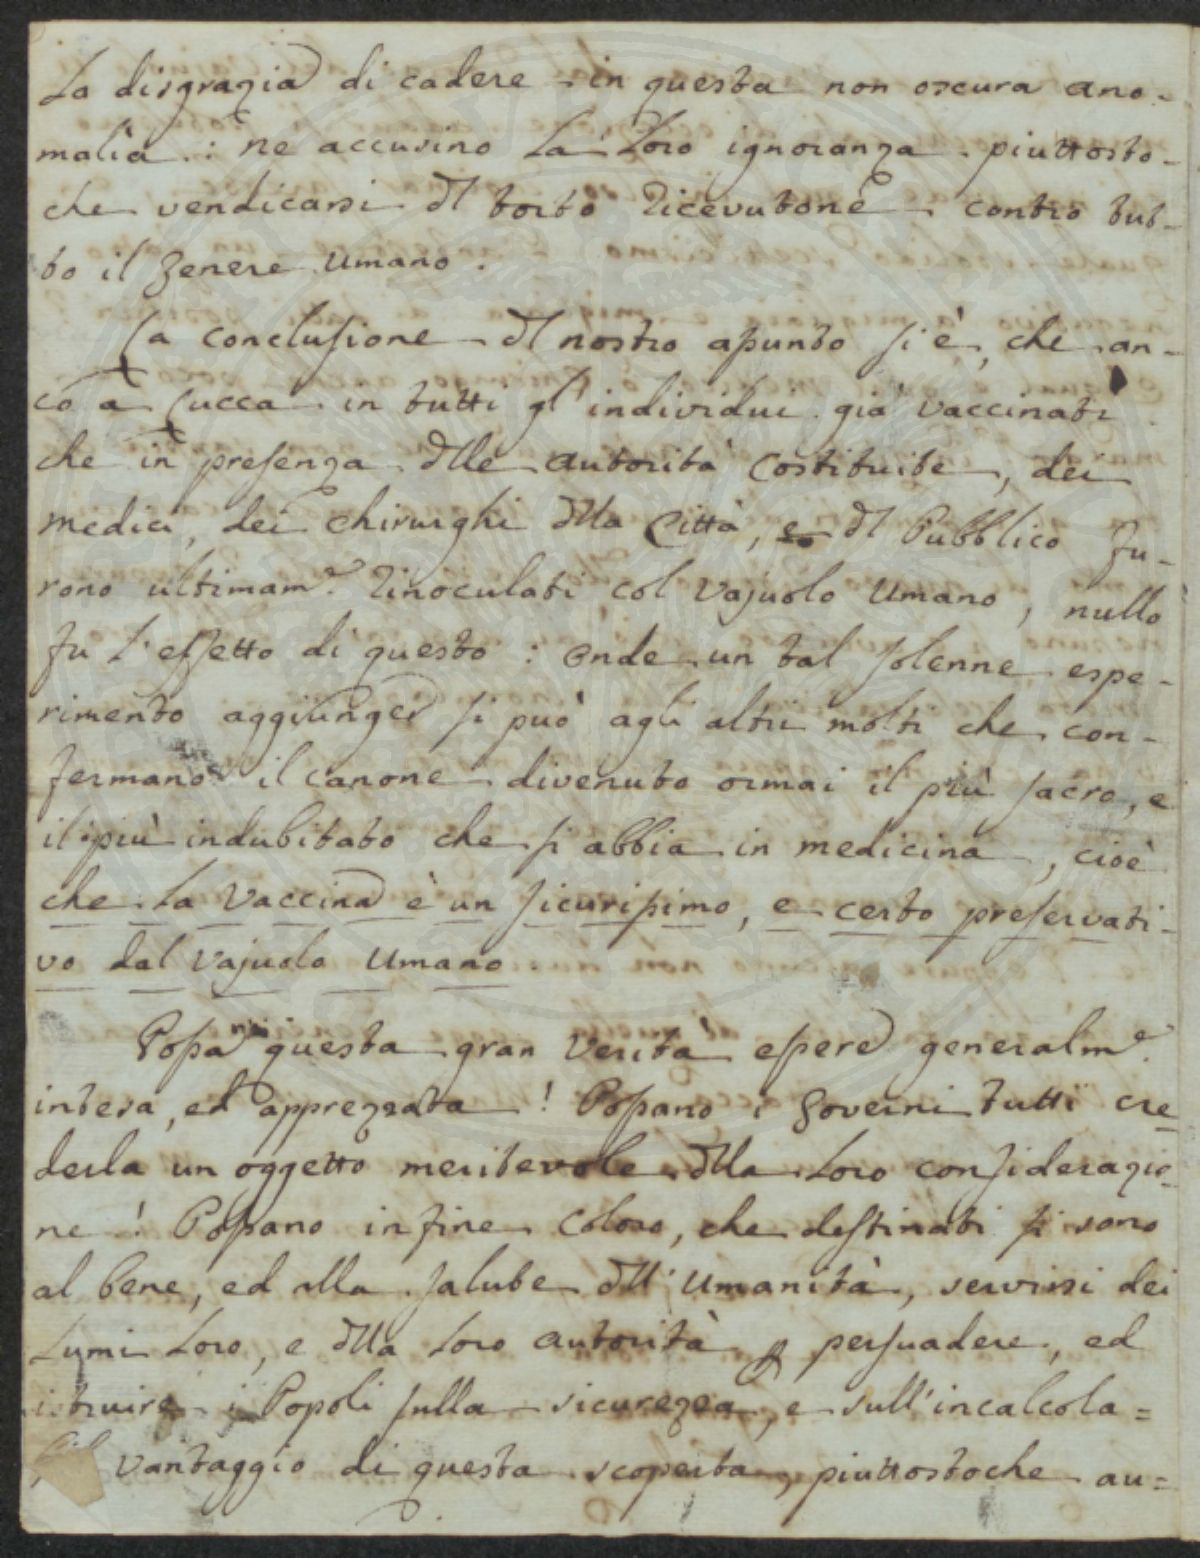 la disgrazia di cadere in questa non oscura ano-
malia: ne accusino la loro ignoranza piuttosto-
che vendicarsi dl torto ricevutone contro tut-
to il genere umano.
La conclusione dl nostro assunto si è, che an-
co a Lucca in tutti gl'individui già vaccinati
che in presenza dlle autorità costituite, dei
medici, dei chirurghi dlla Città, e dl Pubblico fu-
rono ultimam.e rinoculati col vajuolo umano, nullo
fu l'effetto di questo: onde un tal solenne espe-
rimento aggiunger si può agli altri molti che con-
fermano il canone divenuto ormai il più sacro, e
il più indubitato che si abbia in medicina, cioè
che la Vaccina è un sicurissimo, e certo preservati-
vo dal vajuolo umano
Possa questa gran verità essere generalm.e
intesa, ed apprezzata! Possano i Governi tutti cre-
derla un oggetto meritevole dlla loro considerazio-
ne! Possano infine coloro, che destinati si sono
al bene, ed alla salute dll'umanità, servirsi dei
lumi loro, e dlla loro autorità p persuadere, ed
istruire i Popoli sulla sicurezza, e sull'incalcola=
vantaggio di questa scoperta, piuttostoche au=